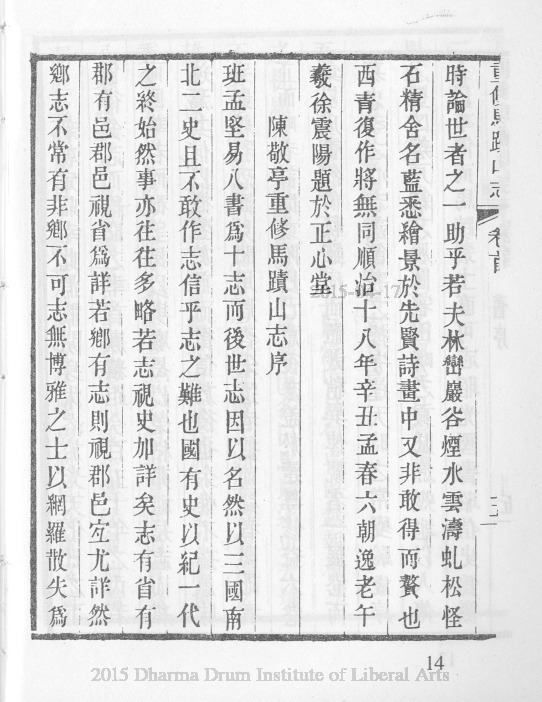 重修馬蹟山志 卷首
時論世者之一助乎若夫林巒巖谷煙水雲濤虬松怪
石精舍名藍悉繪景於先賢詩畫中又非敢得而贅也
西青復作將無同順治十八年辛丑孟春六朝逸老午
羲徐震陽題於正心堂
陳敬亭重修馬蹟山志序
班孟堅易八書爲十志而後世志因以名然以三國南
北二史且不敢作志信乎志之難也國有史以紀一代
之終始然事亦往往多略若志視史加詳矣志有省有
郡有邑郡邑視省爲詳若鄉有志則視郡邑宜尤詳然
鄉志不常有非鄉不可志無博雅之士以網羅散失爲
14
2015 Dharma Drum Institute of Liberal Arts